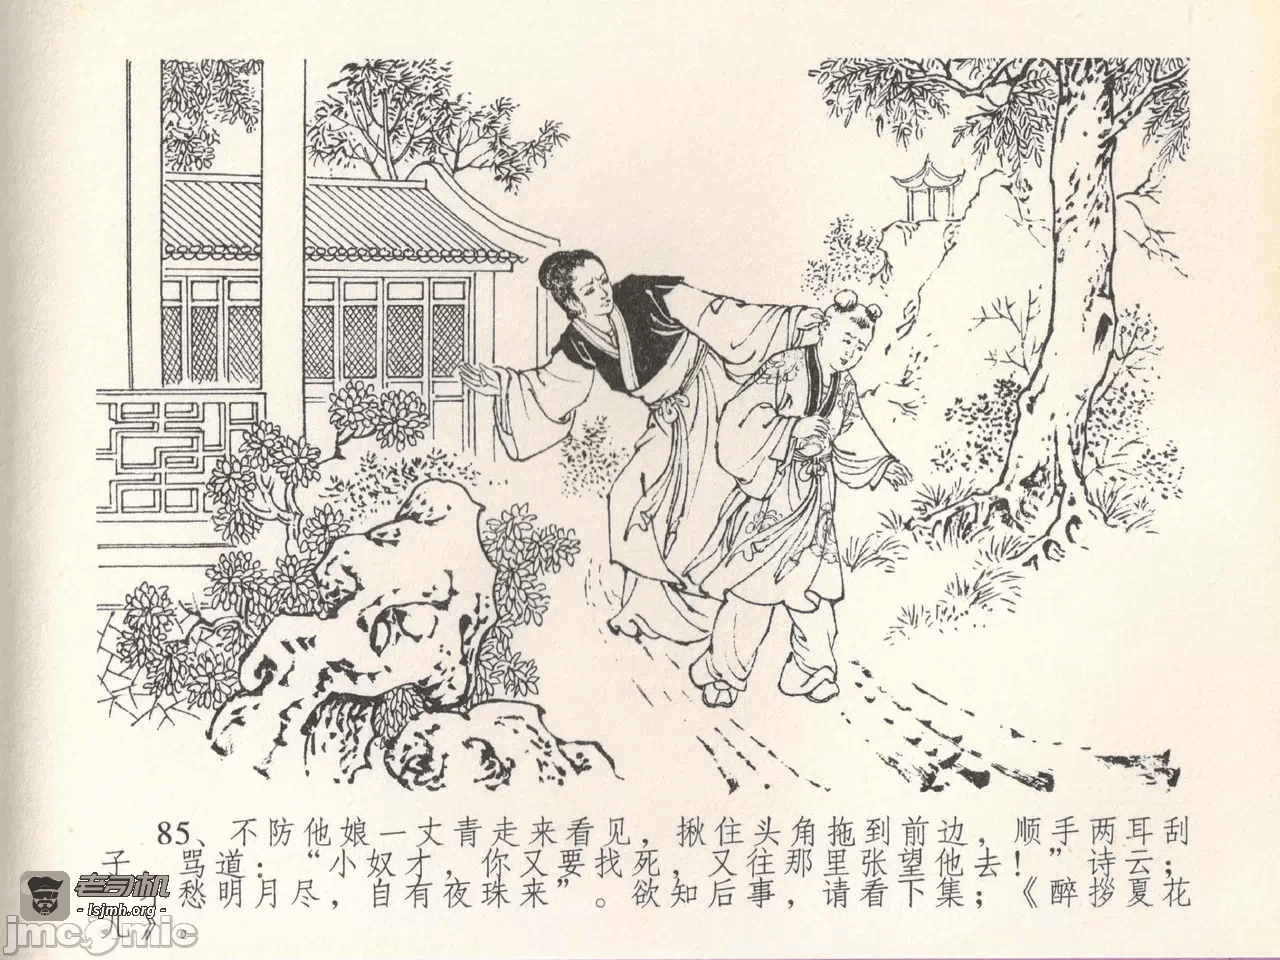 85、不防他娘一丈青走来看见，揪住头角拖到前边，顺手两耳刮
子，骂道：“小奴才，你又要找死，又往那里张望他去！”诗云；
愁明月尽，自有夜珠来”。欲知后事，请看下集；《醉拶夏花
儿》。
老司机
- lsjmh.org -
jmcomic